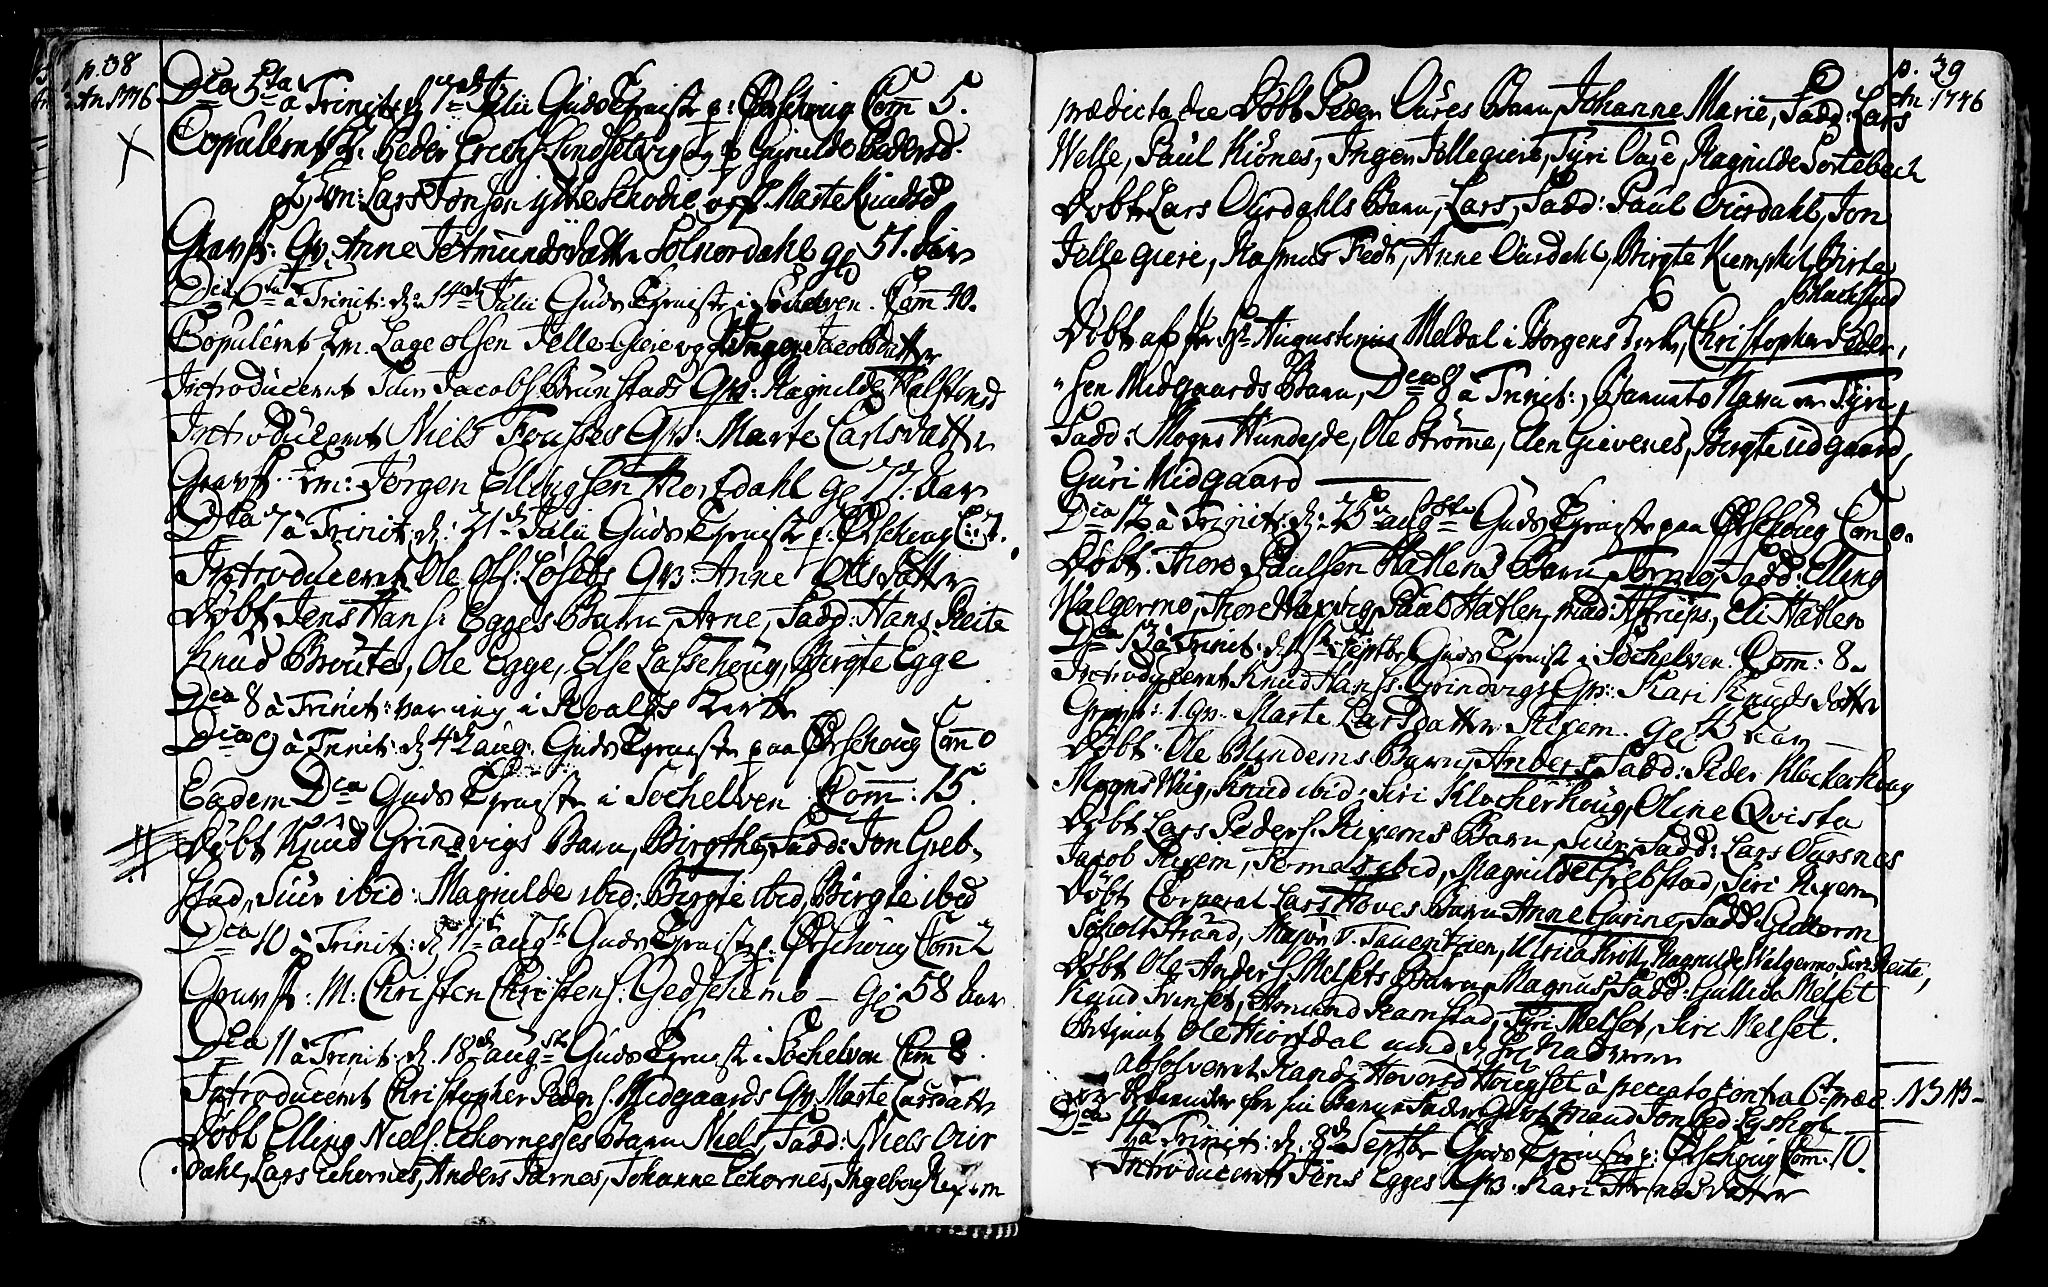 p. 38
An 1776
Dca 5ta à Trinit: d. 7de Julii Guds Tienist p: Ørschoug Com̄ 5.
Copulerut Peder Erichs: Lindseivig og Gunilde Pedersd.
Lars Jonsen ytte Schodie og Marte Knudsd
Gravf: Qv. Anne Jetmundsdatter Solnordahl gl 51. Aar
Dca 6ta à Trinit: d: 14de Julii Guds Tienist i Sochelven. Com̄ 40.
Copulerut Em. Lage Olsen Jelle-Gieie og Ingen Jacobsdatter
Introducerut Siur Jacobs Brunstads Qv: Ragnilde Halstensd
Introducerut Niels Fousses Qv: Marte Carlsdatter
Gravf. Em: Jørgen Ellingsen Hiortdahl gl 77. Aar
Dca 7 à Trinit: d: 21de Julii Guds Tienist p: Ørschoug C: 7.
Introducerut Ole Ols: Løsets Qv: Anne Olsdatter
Døbt Jens Hans: Egges Barn, Arne, Fadd: Hans Reite
Knud Brøute, Ole Egge, Else Lasschoug, Birgte Egge
Dca 8 à Trinit: var ieg i Kirke
Dca 9 à Trinit: d 4de aug: Guds Tienist paa Ørschoug Com̄ 0
Eadem Dca Guds Tienist i Sochelven. Com̄: 15.
Døbt Knud Grindvigs Barn, Birgthe, Fadd: Jon Greb-
stad, Siur ibid: Magnilde ibid: Birgte ibid, Birgte ibid
Dca 10 à Trinit: d. 11te augst Guds Tienist p: Ørschoug Com̄ 2
Gravf: M: Christen Christens: Gedschemo — gl: 58 Aar
Dca 11 à Trinit. d. 18de augst Guds Tienist i Sochelven Com̄ 8.
Introducerut Christopher Peders. Midgaards Qv Marte Larsdatter
Døbt Elling Niels. Echornesses Barn Niels, Fadd: Niels Our
dahl, Lars Echornes, Anders Tærnes, Johanne Echornes, Ingeborg Rexem
p. 39
An 1746
prædicta die Døbt Peder Oures Barn, Johanne Marie, Fadd: Lars
Welle, Paul Kiönes, Ingen Jellegiere, Tyri Oure, Ragnilde Sortebech
Døbt Lars Ourdahls Barn, Lars, Fadd: Paul Ourdahl, Jon
Jellegiere, Rasmus Fedt, Anne Ourdahl, Birgte Kiemphil, Birta
Blachstad
Døbt af Hr Augustinus Meldal i Borgens Kirke, Christopher Peder-
sen Midgaards Barn, Dca 8 à Trinit:, Barnets Navn er Tyri,
Fadd: Mogns Hundejde, Ole Strømme, Elen Gievenes, Birgte udgaard,
Guri Midgaard
Dca 12 à Trinit: d: 25de augsti Guds Tienist paa Ørschoug Com̄ 0.
Døbt Thore Paulsen Hatlens Barn Fadd: Elling
Walgermo, Thore Paul Hatlen, Eli Hatlen
Dca 13 à Trinit: d. 1te Septbr Guds Tienist i Sochelven. Com̄: 8.
Introducerut Knud Hans: Grindvigs Qv: Kari Knudsdatter
Gravf: 1. Qv: Marte Larsdatter Rexem. gl 45 aar
Døbt: Ole Blindems Barn, Anders, Fadd: Peder Klocherhoug
Mogns Wiig, Knud ibid: Siri Klocherhoug, Oline Qvista
Døbt Lars Peders. Rexems Barn, Siur, Fadd: Lars Tusnes
Jacob Rexem, ibid, Magnilde Grebstad, Siri Rexem
Døbt Corperal Lars Hoves Barn Anne Carine, Fadd: Guttorm
Scholt Strand, Majör v. Tauentzien, Ulrica Ragnilde Walgermo, Siri Reite,
Døbt Ole Anders. Melsets Barn, Magnus, Fadd: Gullich Melset
Knud Svenset, Amund Ramstad, Tyri Melset, Siri Melset.
Betient Ole Hiortdal med
absolveret Randi Hoversd Hougset à peccato contra 6t præc. NB NB
for sin Barne Fader
Dca 14 à Trinit: d. 8de Septbr Guds Tienist p: Ørschoug Com̄: 10.
Introducerut Jens Egges Qv: Kari Arnesdatter